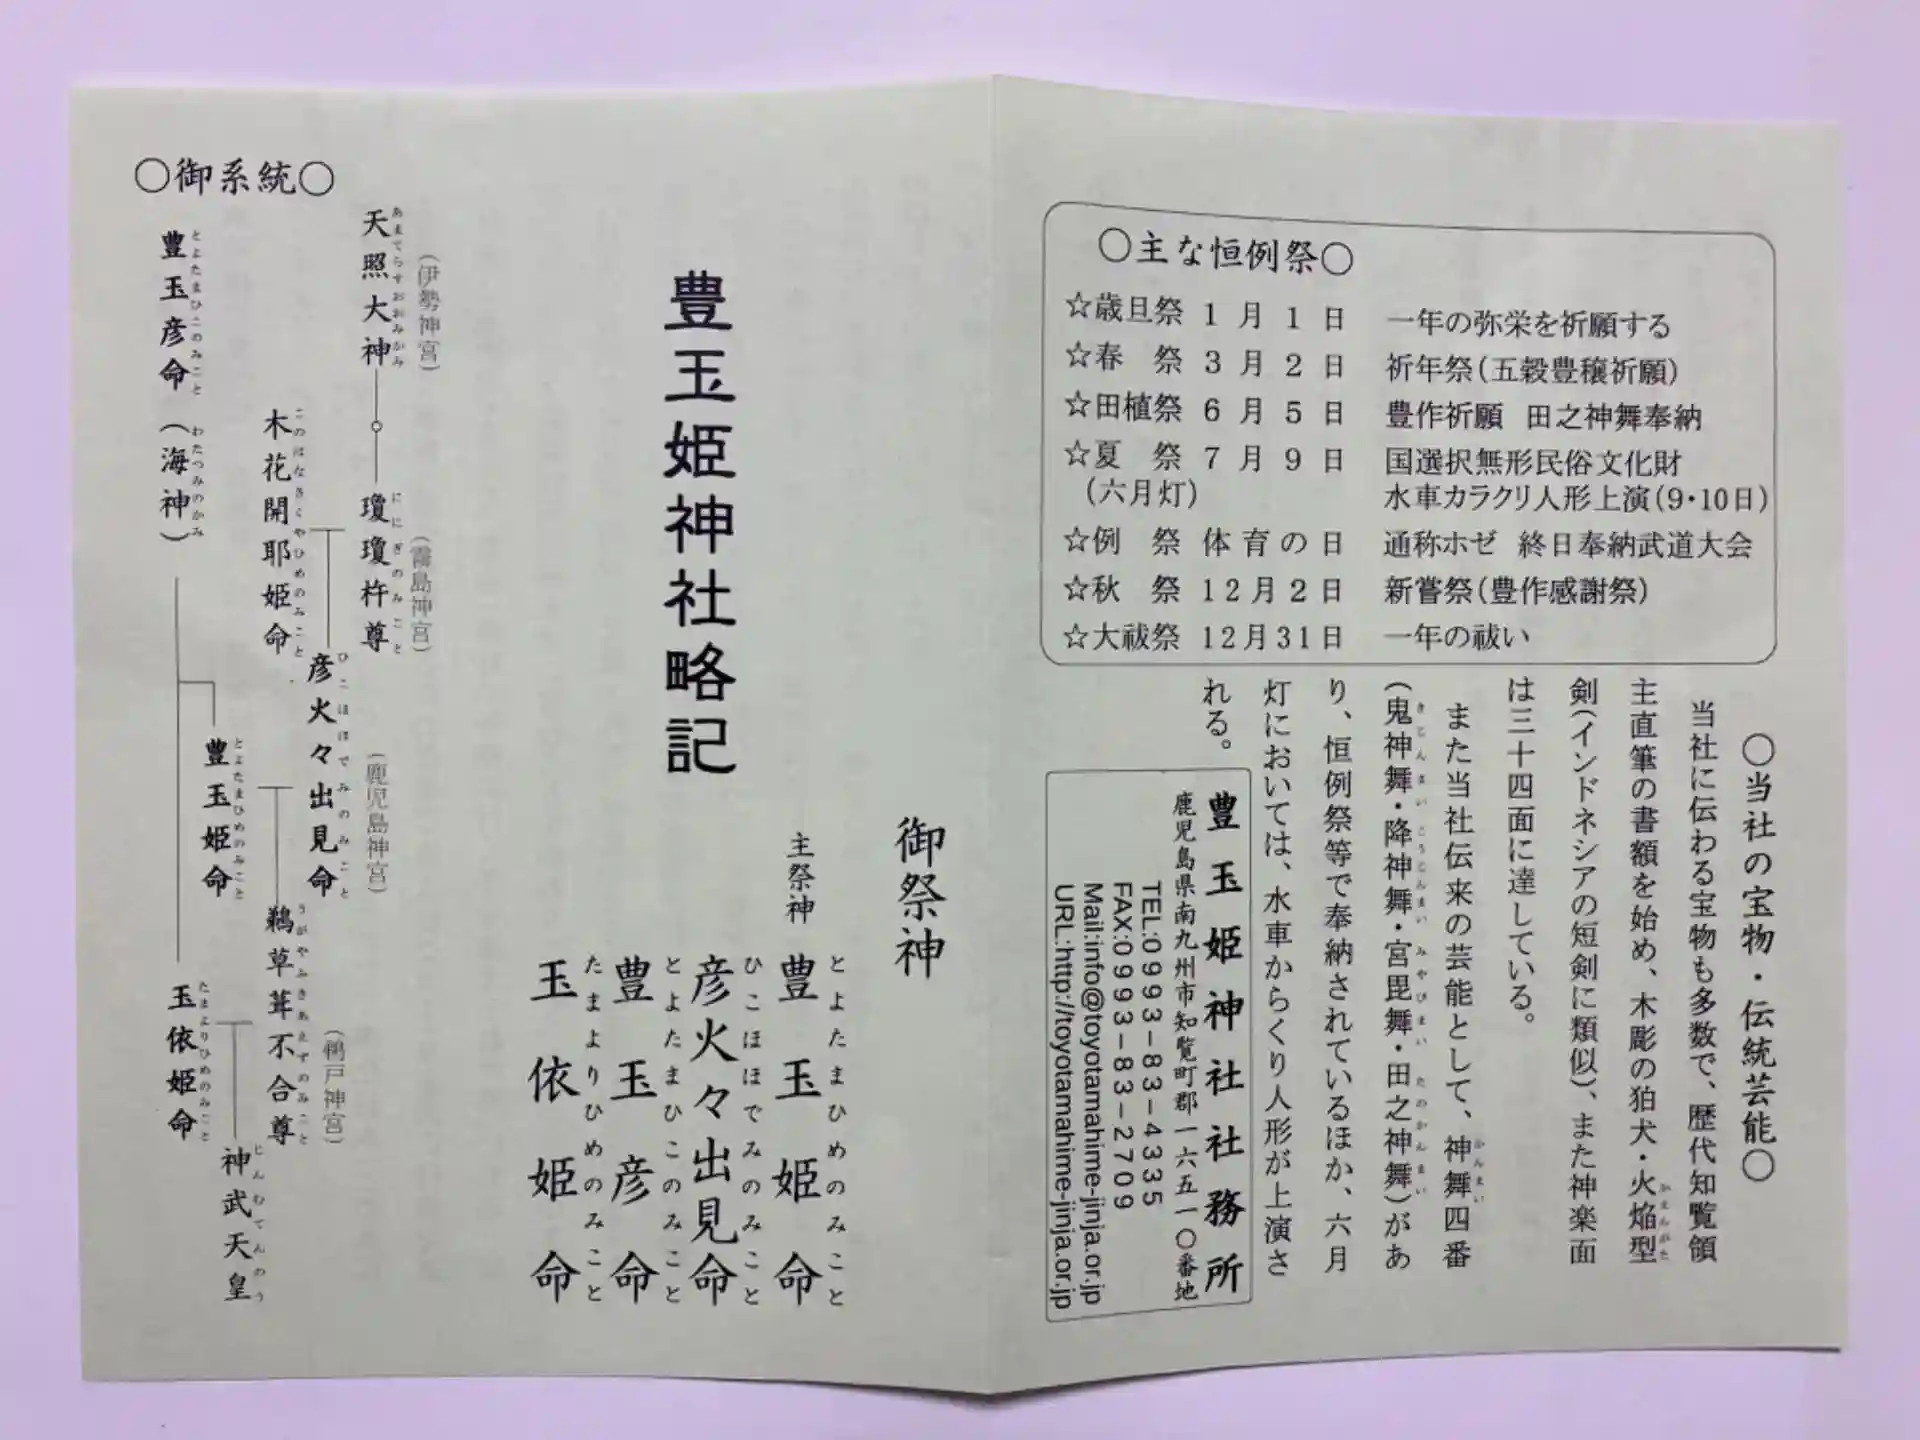 〇主な恒例祭〇
☆歳旦祭 1月1日 一年の弥栄を祈願する
☆春 祭 3月2日 祈年祭(五穀豊穣祈願)
☆田植祭 6月5日 豊作祈願 田之神舞奉納
☆夏 祭 7月9日 国選択無形民俗文化財
(六月灯) 水車カラクリ人形上演(9・10日)
☆例 祭 体育の日 通称ホゼ 終日奉納武道大会
☆秋 祭 12月2日 新嘗祭(豊作感謝祭)
☆大祓祭 12月31日 一年の祓い
〇当社の宝物・伝統芸能〇
当社に伝わる宝物も多数で、歴代知覧領
主直筆の書額を始め、木彫の狛犬・火焔型
かえんがた
剣(インドネシアの短剣に類似)、また神楽面
は三十四面に達している。
また当社伝来の芸能として、神舞四番
かんまい
(鬼神舞・降神舞・宮毘舞・田之神舞)があ
きじんまい こうじんまい みやびまい たのかんまい
り、恒例祭等で奉納されているほか、六月
灯においては、水車からくり人形が上演さ
れる。
豊玉姫神社社務所
鹿児島県南九州市知覧町郡一六五一〇番地
TEL:0993-83-4335
FAX:0993-83-2709
Mail:info@toyotamahime-jinja.or.jp
URL:http://toyotamahime-jinja.or.jp
御祭神
主祭神 豊玉姫命
とよたまひめのみこと
彦火々出見命
ひこほほでみのみこと
豊玉彦命
とよたまひこのみこと
玉依姫命
たまよりひめのみこと
豊玉姫神社略記
〇御系統〇
(伊勢神宮)
天照大神
あまてらすおおみかみ
(霧島神宮)
瓊瓊杵尊
ににぎのみこと
木花開耶姫命
このはなさくやひめのみこと
(鹿児島神宮)
彦火々出見命
ひこほほでみのみこと
豊玉彦命(海神)
とよたまひこのみこと わたつみのかみ
豊玉姫命
とよたまひめのみこと
(鵜戸神宮)
鵜草葺不合尊
うがやふきあえずのみこと
玉依姫命
たまよりひめのみこと
神武天皇
じんむてんのう